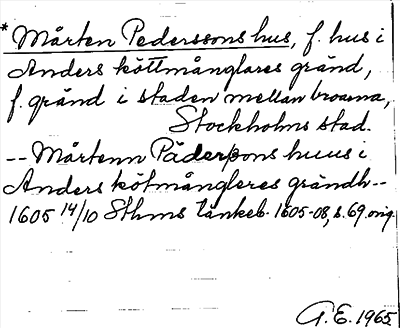 * Mårten Pederssons hus, f. hus i
Anders köttmånglares gränd,
f. gränd i staden mellan broarna,
Stockholms stad.
-- Mårtenn Päderßons huus i
Anders kötmångleres grändh--
1605 14/10 Sthms tänkeb. 1605-08, s. 69 orig.
A.E. 1965.